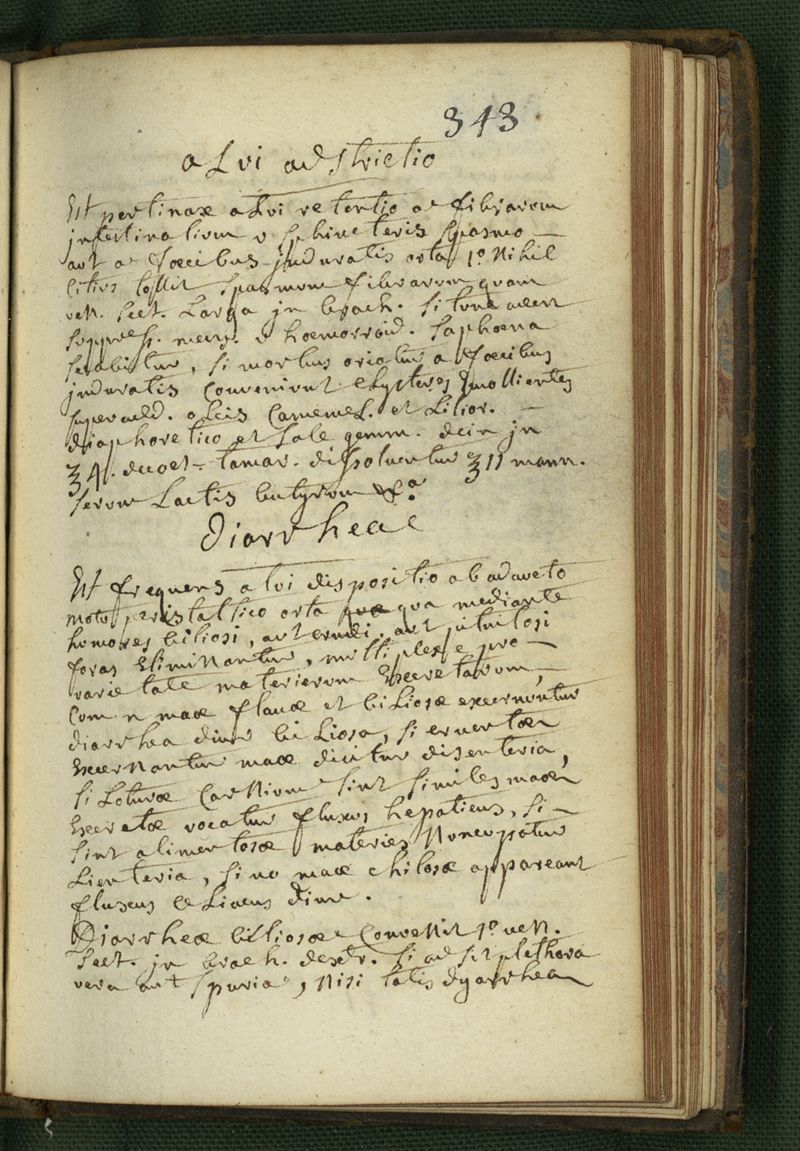 343
alvi adstrictio
Est pertinax alvi retentio a fibrarum
intestinalium v sphincteris spasmo
aut a foecibus induratis orta 1º Nihil
citius tollit spasmum fibrarum quam
ven. sect. larga in brach. si tunc
suppress. mens. v hoemorroid. saphoena
secabitur, si morbus oriatur a foecibus
induratis convenirnt clysteres Emollientes
superadd. oleis Camemel. et Lilior.
diaphoretico et sale gemm. dein in
℥4. decoct. tamar. dissolventur ℥11 mann.
serum Lactis butyrum &ª
Diarrheae
Est frequens alvi dispositio ab adaucto
motu peristaltico orta qua mediante
humores biliosi, aut crudi, aut pituitosi
foras Eliminantur, multiplex e pro
varietate materierum Excretarum,
Cum n maae flavae et biliosae excernuntur
diarrhea dicitur biliosa, si cruentae
Excernantur maae dicitur disenteria,
si Loturae Carnium sint similes maae
Excretae vocatur fluxus hepaticus, si
sint alimentosae materies Noncupatur
Lienteria, si vo maae chilosae appareant
fluxus Celiacus dicitur.
Diarrheae biliosae Convenit 1º ven.
sect. in brach. dextr. si adsit plethora
vera aut spuria, Nisi talis dyarrhea